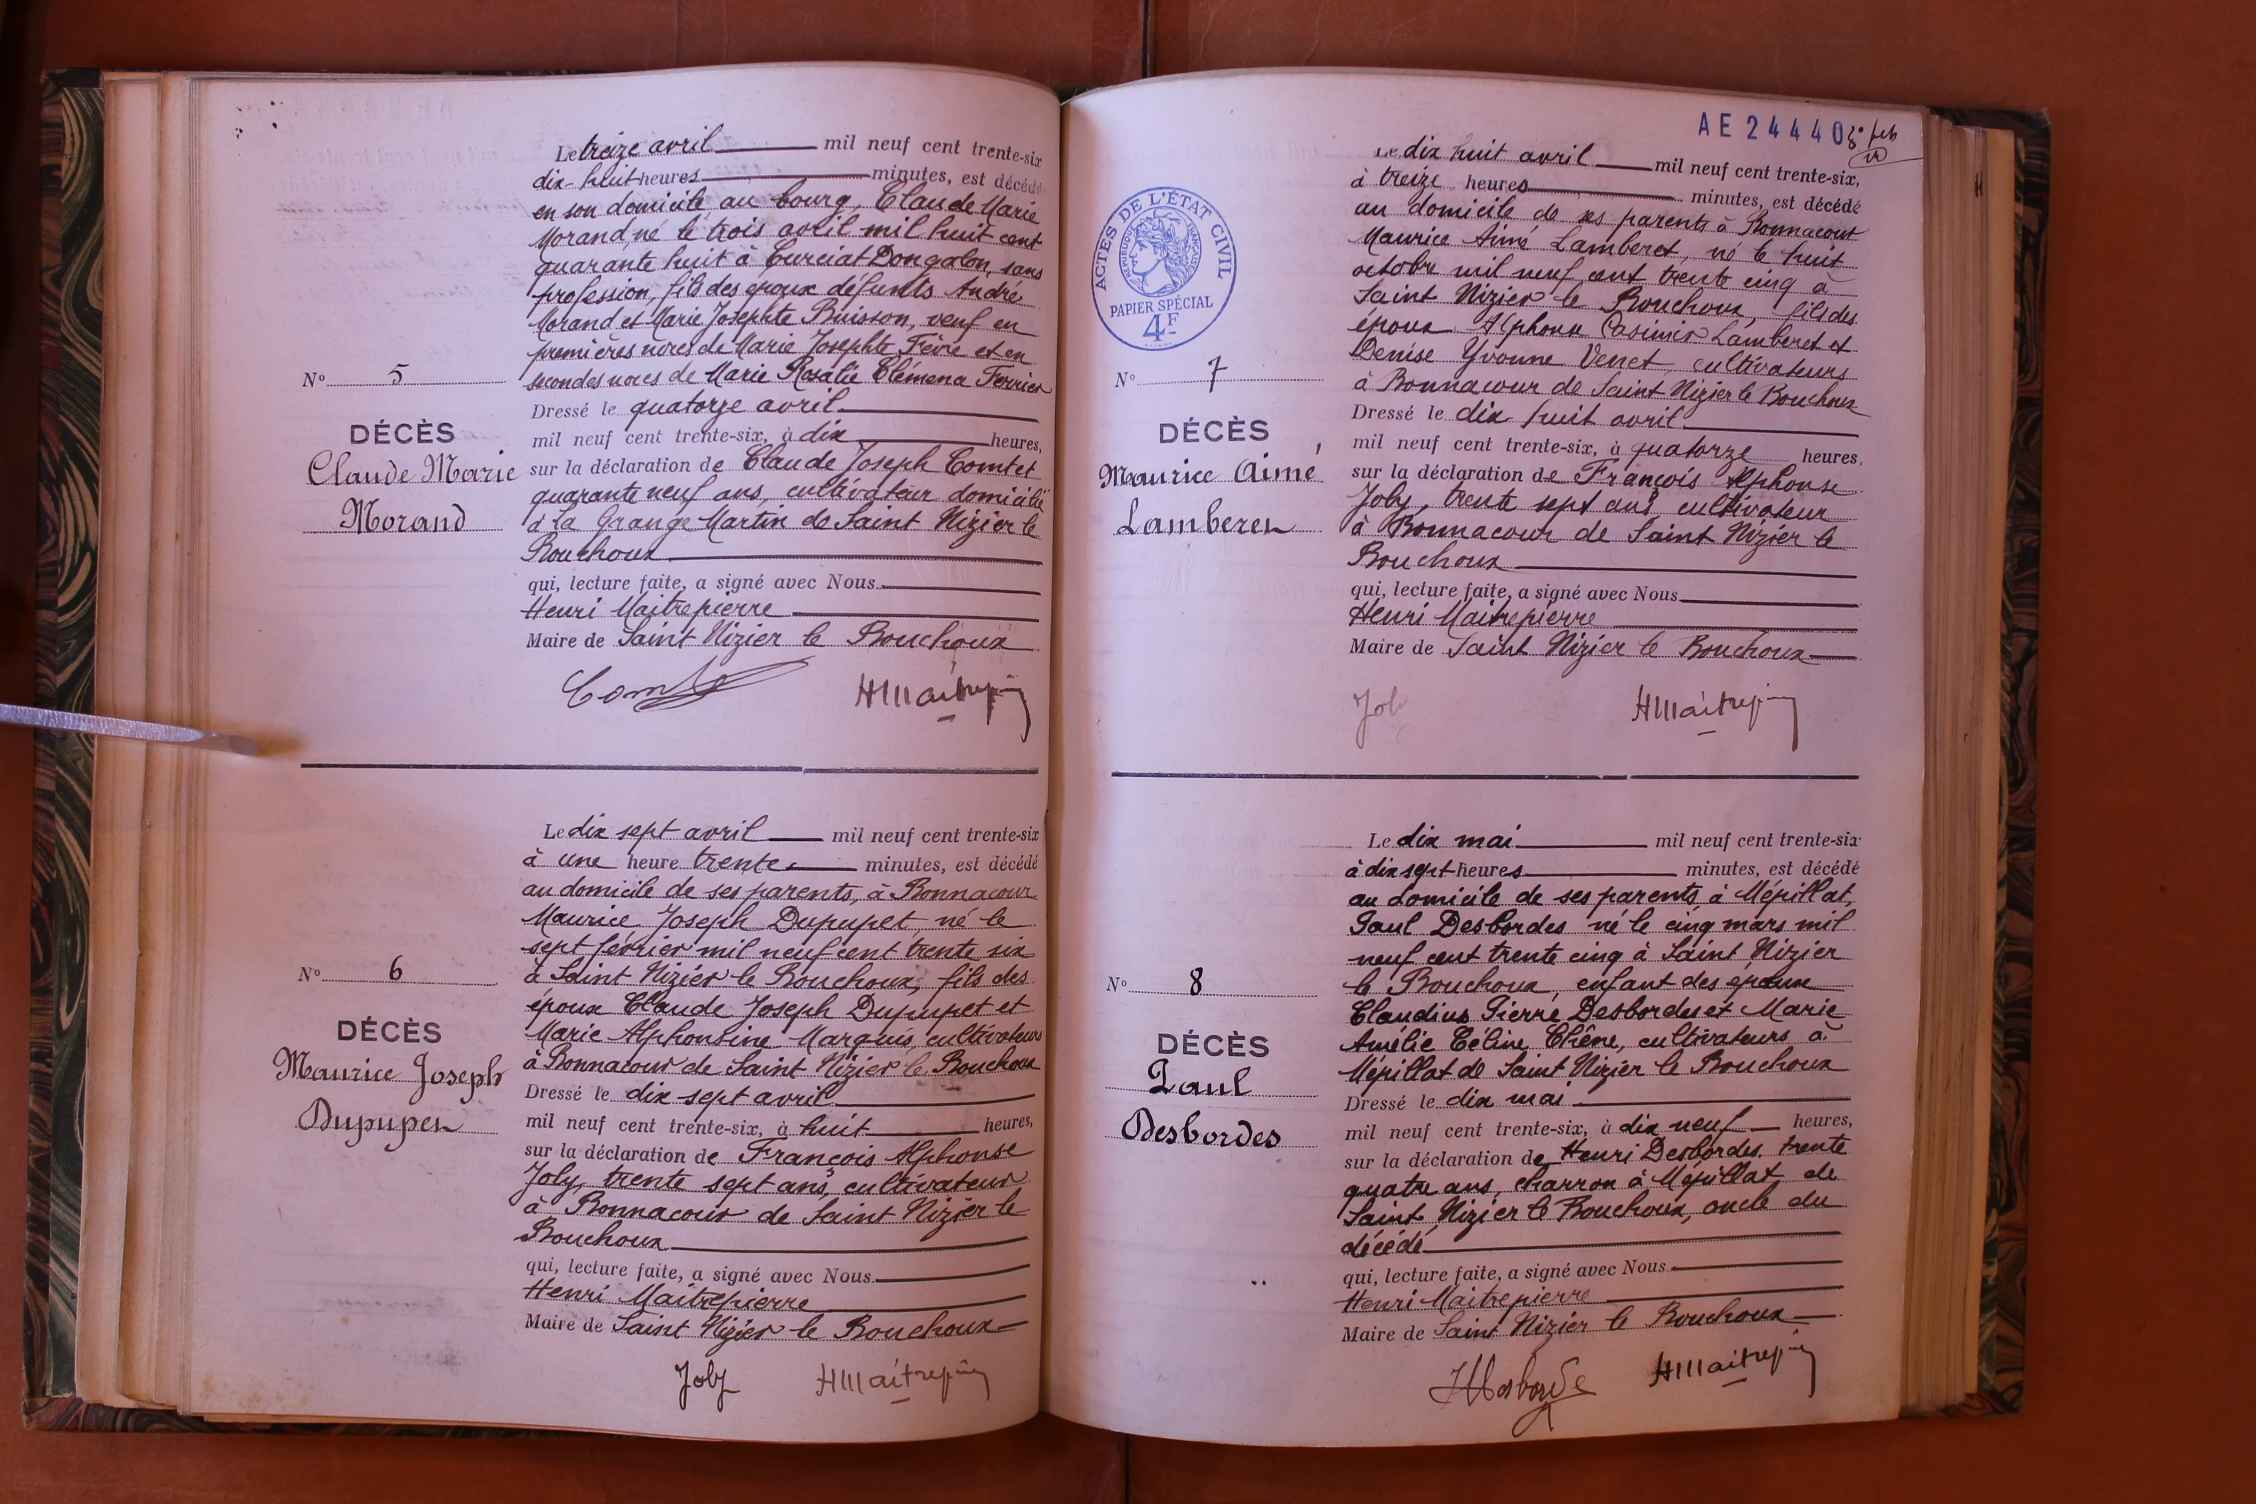 Le treize avril mil neuf cent trente-six
dix-huit heures minutes, est décédé
en son domicile au bourg, Claude Marie
Morand, né le trois avril mil huit cent
quarante huit à Curciat Dongalon, sans
profession, fils des époux défunts André
Morand et Marie Josephte Buisson, veuf en
premières noces de Marie Josephte Fèvre et en
secondes noces de Marie Rosalie Clémena Ferrier
N° 5
DÉCÈS
Claude Marie
Morand
Dressé le quatorze avril
mil neuf cent trente-six, à dix heures,
sur la déclaration de Claude Joseph Comtet
quarante neuf ans, cultivateur domicilié
à la Grange Martin de Saint Nizier le
Bouchoux
qui, lecture faite, a signé avec Nous
Henri Maitrepierre
Maire de Saint Nizier le Bouchoux
HMaitrepierre
Le dix sept avril mil neuf cent trente-six
à une heure trente minutes, est décédé
au domicile de ses parents, à Bonnacour
Maurice Joseph Dupupet, né le
sept février mil neuf cent trente six
à Saint Nizier le Bouchoux, fils des
époux Claude Joseph Dupupet et
Marie Alphonsine Marquis, cultivateurs
à Bonnacour de Saint Nizier le Bouchoux
N° 6
DÉCÈS
Maurice Joseph
Dupupet
Dressé le dix sept avril
mil neuf cent trente-six, à huit heures,
sur la déclaration de François Alphonse
Joly, trente sept ans, cultivateur
à Bonnacour de Saint Nizier le
Bouchoux
qui, lecture faite, a signé avec Nous
Henri Maitrepierre
Maire de Saint Nizier le Bouchoux
Joly HMaitrepierre
AE 24440
ACTES DE L'ÉTAT CIVIL
RÉPUBLIQUE FRANÇAISE
PAPIER SPÉCIAL
4F
Le dix huit avril mil neuf cent trente-six,
à treize heures minutes, est décédé
au domicile de ses parents à Bonnacour
Maurice Aimé Lamberet, né le huit
octobre mil neuf cent trente cinq à
Saint Nizier le Bouchoux, fils des
époux Alphonse Casimir Lamberet et
Denise Yvonne Venet, cultivateurs
à Bonnacour de Saint Nizier le Bouchoux
N° 7
DÉCÈS
Maurice Aimé
Lamberet
Dressé le dix huit avril
mil neuf cent trente-six, à quatorze heures.
sur la déclaration de François Alphonse
Joly, trente sept ans, cultivateur
à Bonnacour de Saint Nizier le
Bouchoux
qui, lecture faite, a signé avec Nous
Henri Maitrepierre
Maire de Saint Nizier le Bouchoux
Joly HMaitrepierre
Le dix mai mil neuf cent trente-six
à dix sept heures minutes, est décédé
au domicile de ses parents à Mépillat,
Paul Desbordes né le cinq mars mil
neuf cent trente cinq à Saint Nizier
le Bouchoux, enfant des époux
Claudius Pierre Desbordes et Marie
Amélie Céline Chêne, cultivateurs à
Mépillat de Saint Nizier le Bouchoux
N° 8
DÉCÈS
Paul
Desbordes
Dressé le dix mai
mil neuf cent trente-six, à dix neuf heures,
sur la déclaration de Henri Desbordes, trente
quatre ans, charron à Mépillat de
Saint Nizier le Bouchoux, oncle du
décédé
qui, lecture faite, a signé avec Nous
Henri Maitrepierre
Maire de Saint Nizier le Bouchoux
HDesbordes HMaitrepierre